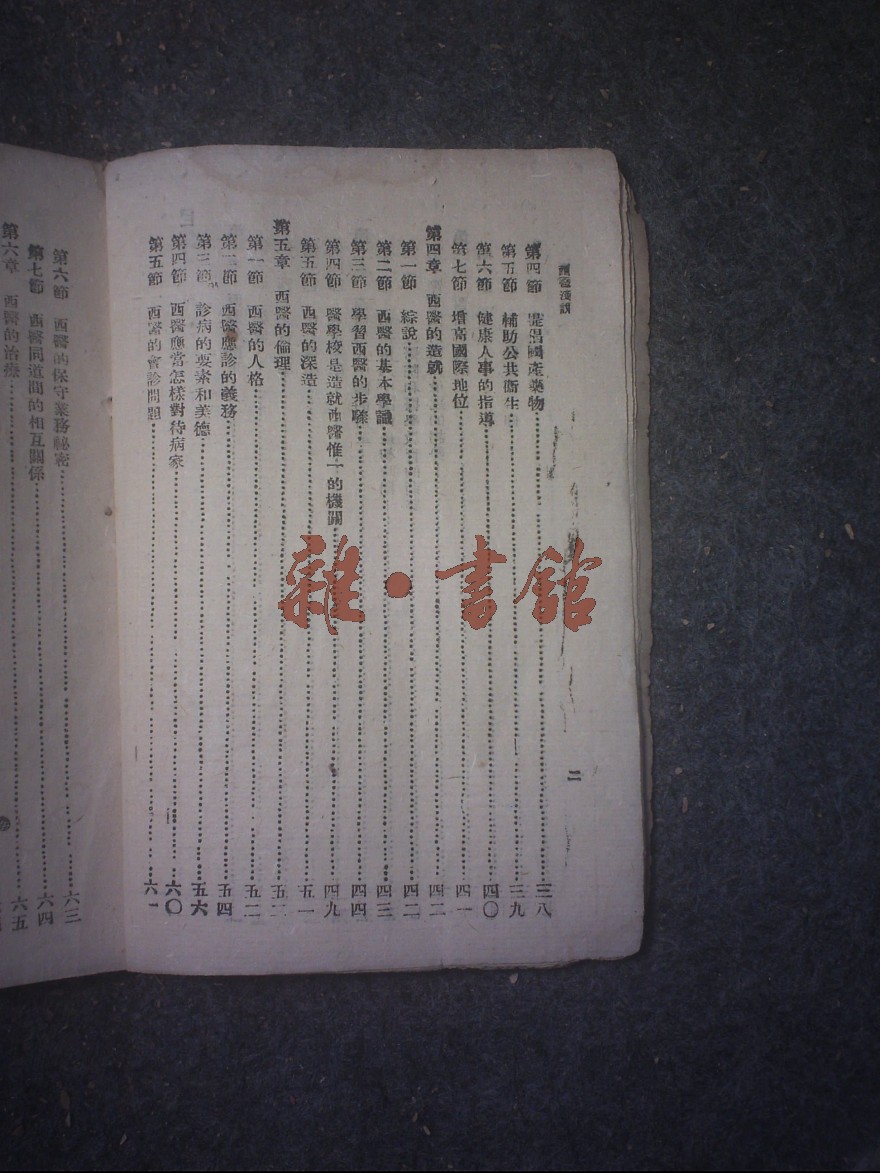 西醫淺說
二
第四節 提倡國產藥物 三八
第五節 輔助公共衛生 三九
第六節 健康人事的指導 四〇
第七節 增高國際地位 四一
第四章 西醫的造就 四二
第一節 綜說 四二
第二節 西醫的基本學識 四三
第三節 學習西醫的步驟 四四
第四節 醫學校是造就西醫惟一的機關 四九
第五節 西醫的深造 五一
第五章 西醫的倫理 五二
第一節 西醫的人格 五二
第二節 西醫應診的義務 五四
第三節 診病的要素和美德 五六
第四節 西醫應當怎樣對待病家 六〇
第五節 西醫的會診問題 六一
第六節 西醫的保守業務祕密 六三
第七節 西醫同道間的相互關係 六四
第六章 西醫的治療 六五
雜·書館